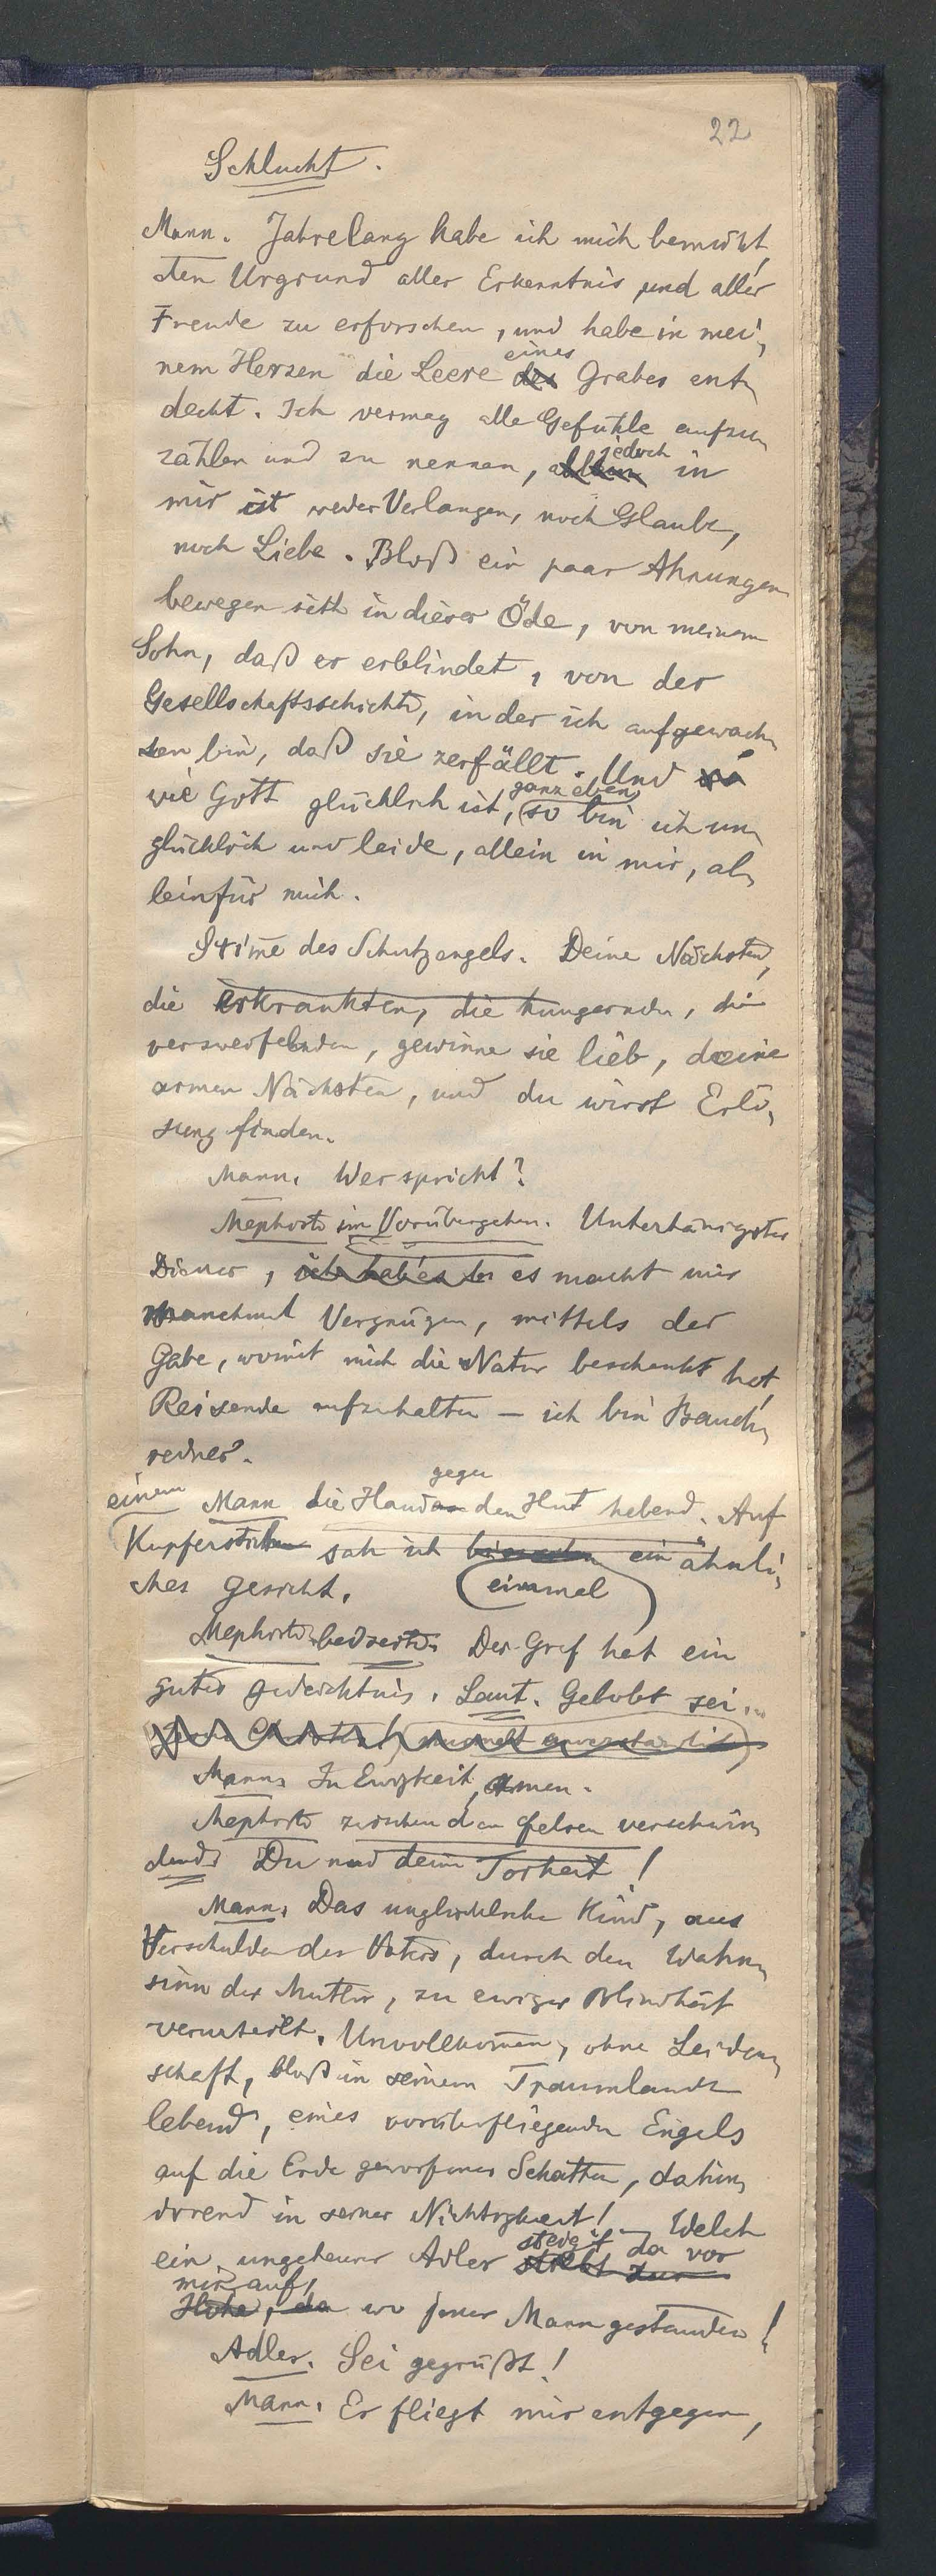 22
Schlucht.
Mann. Jahrelang habe ich mich bemüht,
den Urgrund aller Erkenntnis und aller
Freude zu erforschen, und habe in mei-
eines
nem Herzen die Leere des Grabes ent-
deckt. Ich vermag alle Gefühle aufzu-
jedoch
zählen und zu nennen, allein in
mir ist weder Verlangen, noch Glaube,
noch Liebe. Bloß ein paar Ahnungen
bewegen sich in dieser Öde, von meinem
Sohn, daß er erblindet, von der
Gesellschaftsschichte, in der ich aufgewach-
sen bin, daß sie zerfällt. Und
ganz eben
wie Gott glücklich ist, so bin ich un-
glücklich und leide, allein in mir, al-
lein für mich.
Stim̄e des Schutzengels. Deine Nächsten,
die erkrankten, die hungernden, die
verzweifelnden, gewinne sie lieb, deine
armen Nächsten, und du wirst Erlö-
sung finden.
Mann. Wer spricht?
Mephisto im Vorübergehen. Untertänigster
Diener, ich hab es es macht mir
manchmal Vergnügen, mittels der
Gabe, womit mich die Natur beschenkt hat,
Reisende aufzuhalten – ich bin Bauch-
redner.
gegen
einem Mann die Hand an den Hut hebend. Auf
Kupferstichen sah ich ein ähnli-
ches Gesicht. einmal
Mephisto beiseite. Der Graf hat ein
gutes Gedächtnis. Laut. Gelobt sei...
Mann. In Ewigkeit, Amen.
Mephisto zwischen den Felsen verschwin-
dend. Du und deine Torheit!
Mann. Das unglückliche Kind, aus
Verschulden des Vaters, durch den Wahn-
sinn der Mutter, zu ewiger Blindheit
verurteilt. Unvollkom̄en, ohne Leiden-
schaft, bloß in seinem Traumlande
lebend, eines vorüberfliegenden Engels
auf die Erde geworfener Schatten, dahin-
irrend in seiner Nichtigkeit! – Welch
steigt da vor
ein ungeheurer Adler strebt zur
mir auf,
Höhe, da wo jener Mann gestanden!
Adler. Sei gegrüßt!
Mann. Er fliegt mir entgegen,